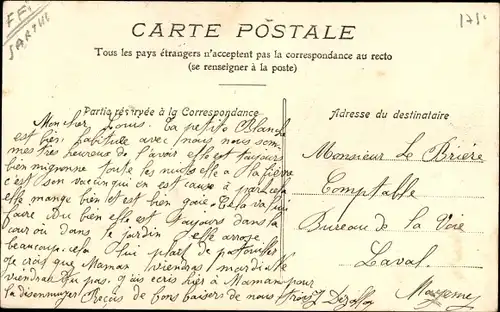 FF.
SARTHE
CARTE POSTALE
Tous les pays étrangers n'acceptent pas la correspondance au recto
(se renseigner à la poste)
Partie réservée à la Correspondance
Adresse du destinataire
Mon cher Louis. La petite Blanche
est bien habituée avec nous nous som-
mes très heureux de l'avoir elle est toujours
bien mignonne toute les nuits elle a la fièvre
c'est son vaccin qui en est cause à part cela
elle mange bien et est bien gaie. Cela va lui
faire du bien elle est toujours dans la
cour où dans le jardin elle arrose
beaucoup cela lui plait de
je crois que Maman viendras mardi ne
viendras tu pas. j'ais écris hier à Maman pour
la Reçois de bons baisers de nous trois
Monsieur Le Brière
Comptable
Bureau de la Voie
Laval
Mayenne